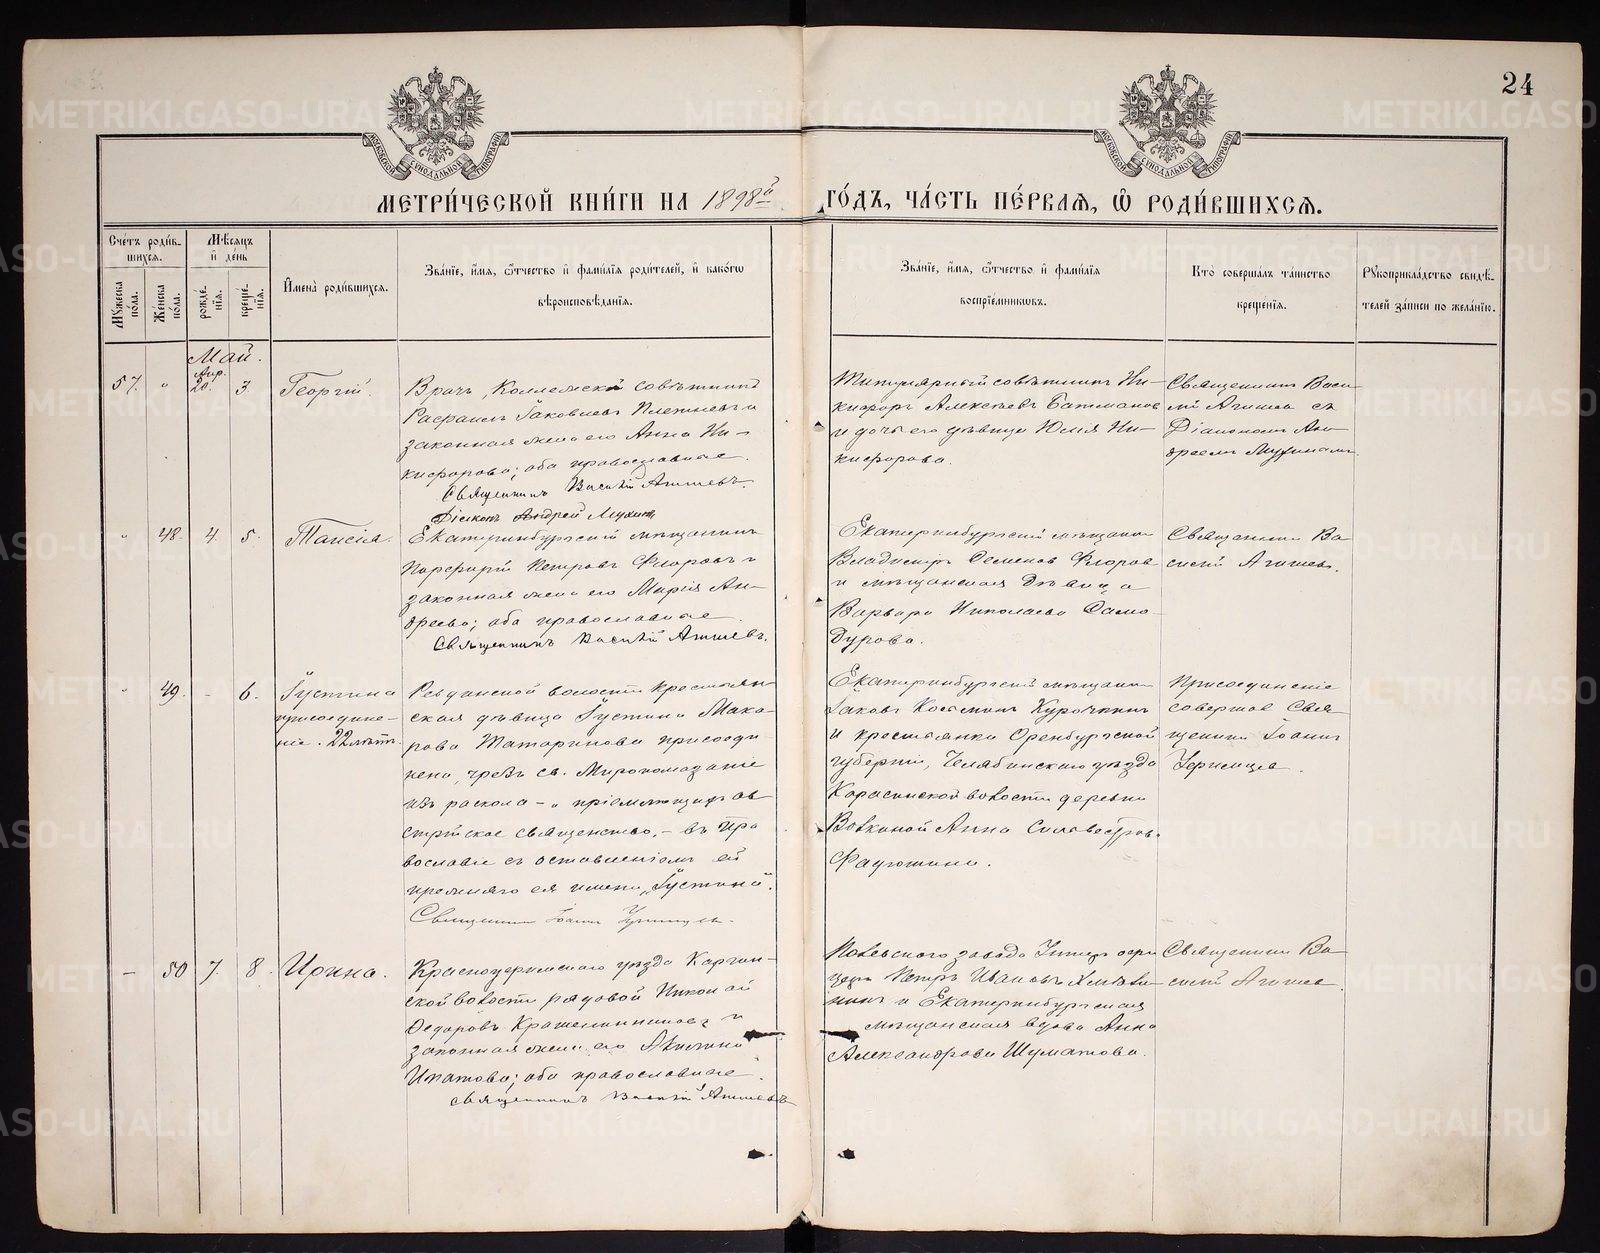 24
МОСКОВСКОЙ СѴНОДАЛЬНОЙ ТИПОГРАФІИ
МОСКОВСКОЙ СѴНОДАЛЬНОЙ ТИПОГРАФІИ
МЕТРИ́ЧЕСКОЙ КНИ́ГИ НА 1898й ГО́ДЪ, ЧА́СТЬ ПЕ́РВАѦ, Ѽ РОДИ́ВШИХСѦ.
Сче́тъ роди́вшихсѧ.
Мꙋ́жеска по́ла.
Же́нска по́ла.
Мѣ́сѧцъ и҆ де́нь
рожде́нїѧ.
креще́нїѧ.
И҆мена̀ роди́вшихсѧ.
Зва́нїе, и҆́мѧ, ѻ҆́тчество и҆ фами́лїѧ роди́телей, и҆ како́гѡ
вѣроисповѣ́данїѧ.
Зва́нїе, и҆́мѧ, ѻ҆́тчество и҆ фами́лїѧ
воспрїе́мникѡвъ.
Кто̀ соверша́лъ та́инство
креще́нїѧ.
Рꙋкоприкла́дство свидѣ́телей за́писи по жела́нїю.
Май.
57. " Апр. 20. 3. Георгій.
Врачъ, Коллежскій совѣтникъ
Рафаилъ Іаковлевъ Плетневъ и
законная жена его Анна Ни-
кифорова; оба православные.
Священникъ Василій Агишевъ.
Діаконъ Андрей Мухинъ
Титулярный совѣтникъ Ни-
кифоръ Алексѣевъ Батмановъ
и дочь его дѣвица Юлія Ни-
кифорова.
Священникъ Васи-
лій Агишевъ съ
Діакономъ Ан-
дреемъ Мухинымъ.
" 48. 4. 5. Таисія.
Екатеринбургскій мѣщанинъ
Порфирій Петровъ Флоровъ и
законная жена его Марія Ан-
дреева; оба православные.
Священникъ Василій Агишевъ.
Екатеринбургскій мѣщанинъ
Владимиръ Семеновъ Флоровъ
и мѣщанская дѣвица
Варвара Николаева Само-
дурова.
Священникъ Ва-
силій Агишевъ.
" 49. - 6. Іустина
присоедине-
ніе. 22 лѣтъ.
Ревдинской волости крестьян-
ская дѣвица Іустина Мака-
рова Татаринова присоеди-
нена, чрезъ св. Миропомазаніе
изъ раскола - пріемлющихъ ав-
стрійское священство, - въ Пра-
вославіе съ оставленіемъ ей
прежняго ея имени "Іустина".
Священникъ Іоаннъ
Екатеринбургскій мѣщанинъ
Іаковъ Косминъ Курочкинъ
и крестьянка Оренбургской
губерніи, Челябинскаго уѣзда
Карасинской волости деревни
Волкиной Анна Силовестрова
Присоединеніе
совершалъ Свя-
щенникъ Іоаннъ
- 50 7. 8. Ирина.
Красноуфимскаго уѣзда Каргин-
ской волости рядовой Николай
Ѳедоровъ Крашенинниковъ и
законная жена его Акилина
Ипатова; оба православные.
Священникъ Василій Агишевъ
завода Унтеръ офи-
церъ Петръ Ивановъ
и Екатеринбургская
мѣщанская вдова Анна
Александрова Шуматова.
Священникъ Ва-
силій Агишевъ.
METRIKI.GASO-URAL.RU